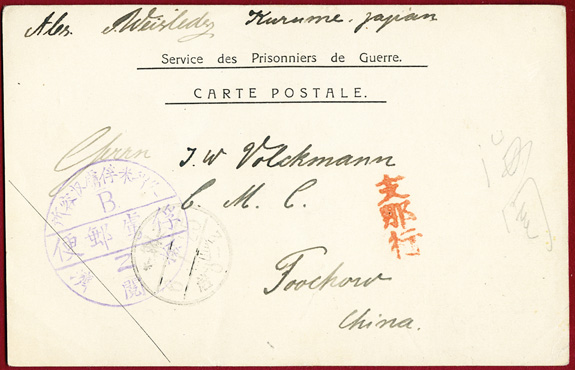 Abs. J. Weisleder Kurume, Japan
Service des Prisonniers de Guerre.
CARTE POSTALE.
Herrn J. W Volckmann
C. M. C.
Foochow
China.
支那行
B
俘虜郵便